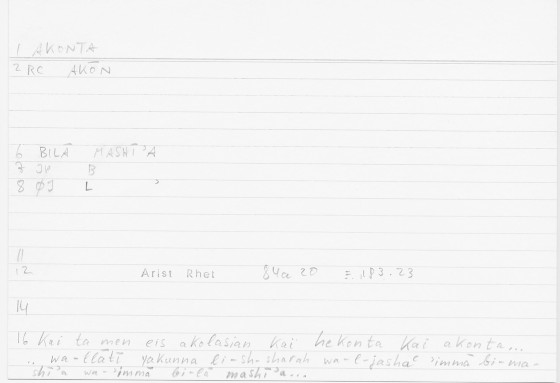 1 AKONTA
2 RC AKŌN
6 BILĀ MASHĪʾA
7 JV B
8 ØJ L ʾ
11
12 Arist Rhet 84a 20 = 183.23
14
16 Kai ta men eis akolasian kai hekonta kai akonta...
.. wa-llātī yakunna li-sh-sharah wa-l-jashaʿ ʾimmā bi-ma-
shīʾa wa-ʾimmā bi-lā mashīʾa...